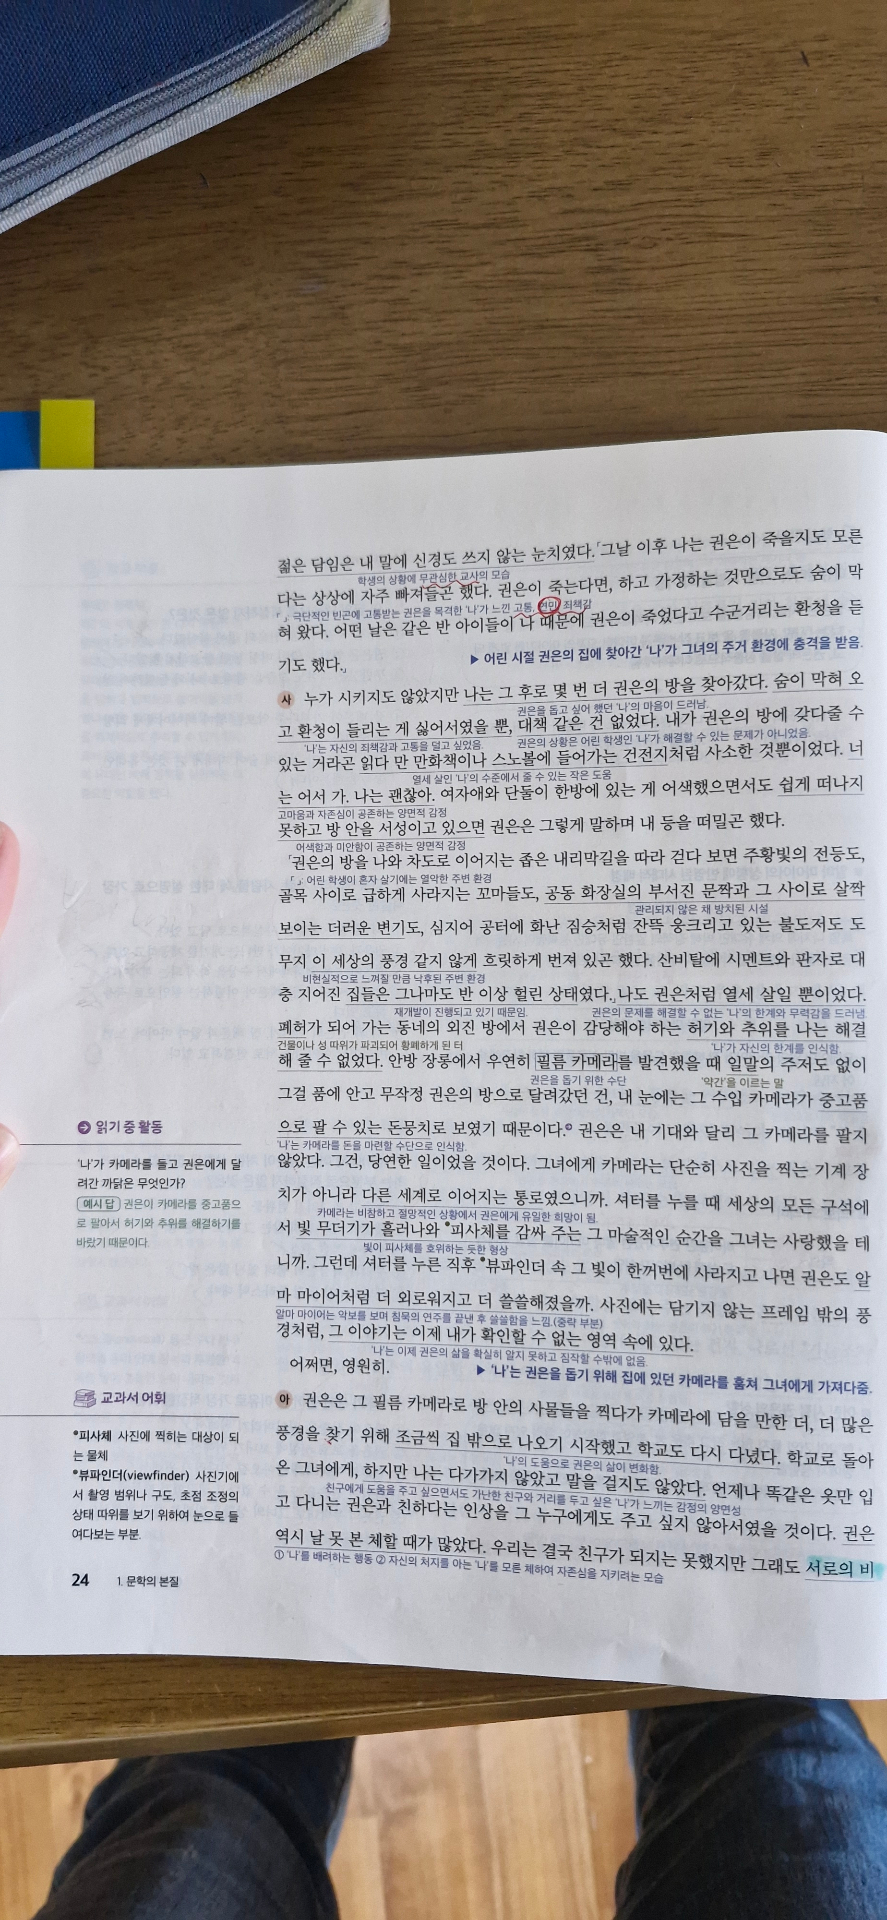 젊은 담임은 내 말에 신경도 쓰지 않는 눈치였다.「그날 이후 나는 권은이 죽을지도 모른
학생의 상황에 무관심한 교사의 모습
다는 상상에 자주 빠져들곤 했다. 권은이 죽는다면, 하고 가정하는 것만으로도 숨이 막
「」: 극단적인 빈곤에 고통받는 권은을 목격한 '나'가 느낀 고통, 연민, 죄책감
혀 왔다. 어떤 날은 같은 반 아이들이 나 때문에 권은이 죽었다고 수군거리는 환청을 듣
기도 했다.」
▶ 어린 시절 권은의 집에 찾아간 '나'가 그녀의 주거 환경에 충격을 받음.
사 누가 시키지도 않았지만 나는 그 후로 몇 번 더 권은의 방을 찾아갔다. 숨이 막혀 오
권은을 돕고 싶어 했던 '나'의 마음이 드러남.
고 환청이 들리는 게 싫어서였을 뿐, 대책 같은 건 없었다. 내가 권은의 방에 갖다줄 수
'나'는 자신의 죄책감과 고통을 덜고 싶었음. 권은의 상황은 어린 학생인 '나'가 해결할 수 있는 문제가 아니었음.
있는 거라곤 읽다 만 만화책이나 스노볼에 들어가는 건전지처럼 사소한 것뿐이었다. 너
열세 살인 '나'의 수준에서 줄 수 있는 작은 도움
는 어서 가. 나는 괜찮아. 여자애와 단둘이 한방에 있는 게 어색했으면서도 쉽게 떠나지
고마움과 자존심이 공존하는 양면적 감정
못하고 방 안을 서성이고 있으면 권은은 그렇게 말하며 내 등을 떠밀곤 했다.
어색함과 미안함이 공존하는 양면적 감정
「권은의 방을 나와 차도로 이어지는 좁은 내리막길을 따라 걷다 보면 주황빛의 전등도,
「」: 어린 학생이 혼자 살기에는 열악한 주변 환경
골목 사이로 급하게 사라지는 꼬마들도, 공동 화장실의 부서진 문짝과 그 사이로 살짝
관리되지 않은 채 방치된 시설
보이는 더러운 변기도, 심지어 공터에 화난 짐승처럼 잔뜩 웅크리고 있는 불도저도 도
무지 이 세상의 풍경 같지 않게 흐릿하게 번져 있곤 했다. 산비탈에 시멘트와 판자로 대
비현실적으로 느껴질 만큼 낙후된 주변 환경
충 지어진 집들은 그나마도 반 이상 헐린 상태였다.」 나도 권은처럼 열세 살일 뿐이었다.
재개발이 진행되고 있기 때문임. 권은의 문제를 해결할 수 없는 '나'의 한계와 무력감을 드러냄.
폐허가 되어 가는 동네의 외진 방에서 권은이 감당해야 하는 허기와 추위를 나는 해결
건물이나 성 따위가 파괴되어 황폐하게 된 터 '나'가 자신의 한계를 인식함.
해 줄 수 없었다. 안방 장롱에서 우연히 필름 카메라를 발견했을 때 일말의 주저도 없이
권은을 돕기 위한 수단 '약간'을 이르는 말
그걸 품에 안고 무작정 권은의 방으로 달려갔던 건, 내 눈에는 그 수입 카메라가 중고품
으로 팔 수 있는 돈뭉치로 보였기 때문이다. 권은은 내 기대와 달리 그 카메라를 팔지
'나'는 카메라를 돈을 마련할 수단으로 인식함.
않았다. 그건, 당연한 일이었을 것이다. 그녀에게 카메라는 단순히 사진을 찍는 기계 장
치가 아니라 다른 세계로 이어지는 통로였으니까. 셔터를 누를 때 세상의 모든 구석에
카메라는 비참하고 절망적인 상황에서 권은에게 유일한 희망이 됨.
서 빛 무더기가 흘러나와 •피사체를 감싸 주는 그 마술적인 순간을 그녀는 사랑했을 테
빛이 피사체를 호위하는 듯한 형상
니까. 그런데 셔터를 누른 직후 •뷰파인더 속 그 빛이 한꺼번에 사라지고 나면 권은도 알
마 마이어처럼 더 외로워지고 더 쓸쓸해졌을까. 사진에는 담기지 않는 프레임 밖의 풍
알마 마이어는 악보를 보며 침묵의 연주를 끝낸 후 쓸쓸함을 느낌.(중략 부분)
경처럼, 그 이야기는 이제 내가 확인할 수 없는 영역 속에 있다.
'나'는 이제 권은의 삶을 확실히 알지 못하고 짐작할 수밖에 없음.
어쩌면, 영원히.
▶ '나'는 권은을 돕기 위해 집에 있던 카메라를 훔쳐 그녀에게 가져다줌.
아 권은은 그 필름 카메라로 방 안의 사물들을 찍다가 카메라에 담을 만한 더, 더 많은
풍경을 찾기 위해 조금씩 집 밖으로 나오기 시작했고 학교도 다시 다녔다. 학교로 돌아
'나'의 도움으로 권은의 삶이 변화함.
온 그녀에게, 하지만 나는 다가가지 않았고 말을 걸지도 않았다. 언제나 똑같은 옷만 입
친구에게 도움을 주고 싶으면서도 가난한 친구와 거리를 두고 싶은 '나'가 느끼는 감정의 양면성
고 다니는 권은과 친하다는 인상을 그 누구에게도 주고 싶지 않아서였을 것이다. 권은
역시 날 못 본 체할 때가 많았다. 우리는 결국 친구가 되지는 못했지만 그래도 서로의 비
① '나'를 배려하는 행동 ② 자신의 처지를 아는 '나'를 모른 체하여 자존심을 지키려는 모습
읽기 중 활동
'나'가 카메라를 들고 권은에게 달
려간 까닭은 무엇인가?
예시 답 권은이 카메라를 중고품으
로 팔아서 허기와 추위를 해결하기를
바랐기 때문이다.
교과서 어휘
•피사체 사진에 찍히는 대상이 되
는 물체
•뷰파인더(viewfinder) 사진기에
서 촬영 범위나 구도, 초점 조정의
상태 따위를 보기 위하여 눈으로 들
여다보는 부분.
24 1. 문학의 본질